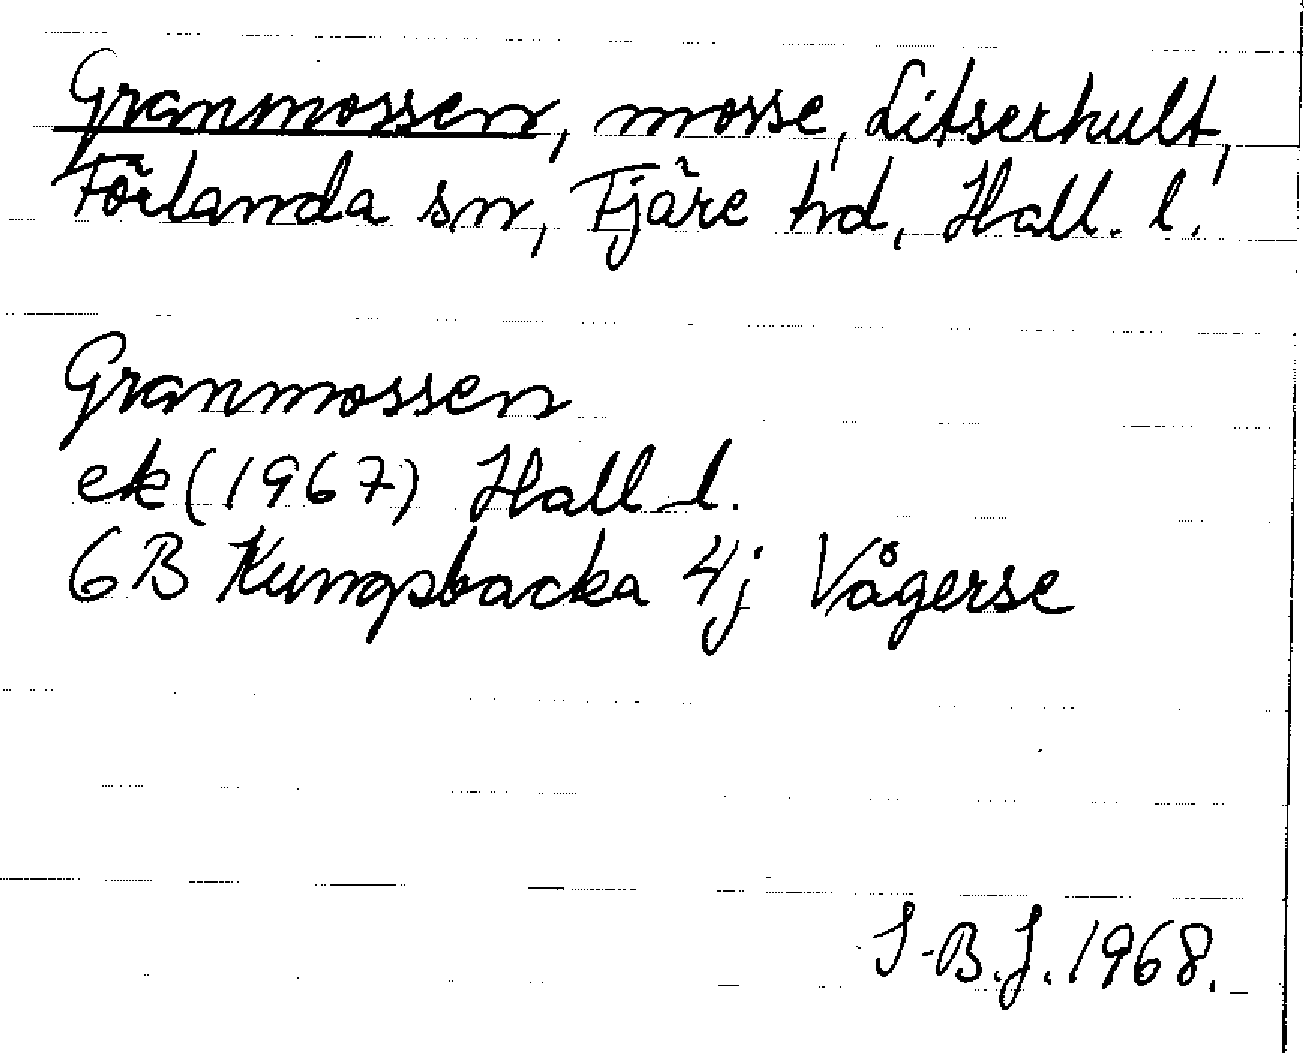 Granmossen, mosse, Litserhult,
Förlanda sn, Fjäre hd, Hall. l.
Granmossen
ek (1967) Hall l.
6B Kungsbacka 4j Vågerse
I-B.J. 1968.